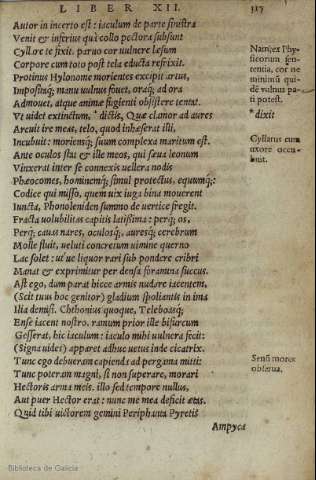 LIBER XII.
327
Autor in incerto est: iaculum de parte sinistra
Venit & inferius quã collo pectora subsunt
Cyllare te fixit. paruo cor vulnere lesum
Corpore cum toto post tela educta refrixit.
Protinus Hylonome morientes excipit artus,
Impositaq; manu vulnus fouet, oraq; ad ora
Admouet, atque animæ fugienti obsistere tentat.
Vt videt extinctum, * dictis, Quæ clamor ad aures
Arcuit ire meas, telo, quod inhæserat illi,
Incubuit: moriensq; suum complexa maritum est.
Ante oculos stat & ille meos, qui sena leonum
Vinxerat inter se connexis vellera nodis
Phæocomes, hominemq; simul protectus, equumq;:
Codice qui misso, quem vix iuga bina mouerent
Iuncta, Phonoleniden summo de vertice fregit.
Fracta volubilitas capitis latissima: perq; os,
Perq; cauas nares, oculosq;, aureśq; cerebrum
Molle fluit, veluti concretum vimine querno
Lac solet: vt ve liquor rari sub pondere cribri
Manat & exprimitur per densa foramina succus.
Ast ego, dum parat hicce armis nudare iacentem,
(Scit tuus hoc genitor) gladium spoliantis in ima
Ilia demisi. Chthonius quoque, Teleboasq;
Ense iacent nostro. ramum prior ille bifurcum
Gesserat, hic iaculum: iaculo mihi vulnera fecit:
(Signa vides) apparet adhuc vetus inde cicatrix.
Tunc ego debueram capienda ad pergama mitti:
Tunc poteram magni, si non superare, morari
Hectoris arma meis. illo sed tempore nullus,
Aut puer Hector erat: nunc me mea deficit ætas.
Quid tibi victorem gemini Periphanta Pyretis
Ampyca
Natræx Phy-
sicorum sen-
tentia, cor ne
minimũ qui-
dẽ vulnus pa-
ti potest.
* dixit
Cyllarus cum
vxore occu-
buit.
Senũ mores
obserua.
Biblioteca de Galicia